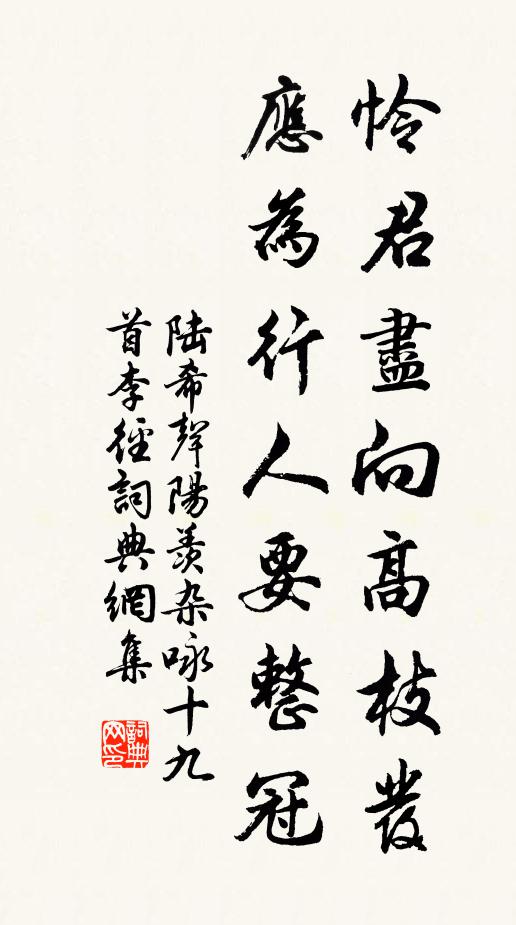 怜君盡向高枝發
應為行人要整冠
陆希聲陽羨杂咏十九
首李徑詞典網集
詞典
网印